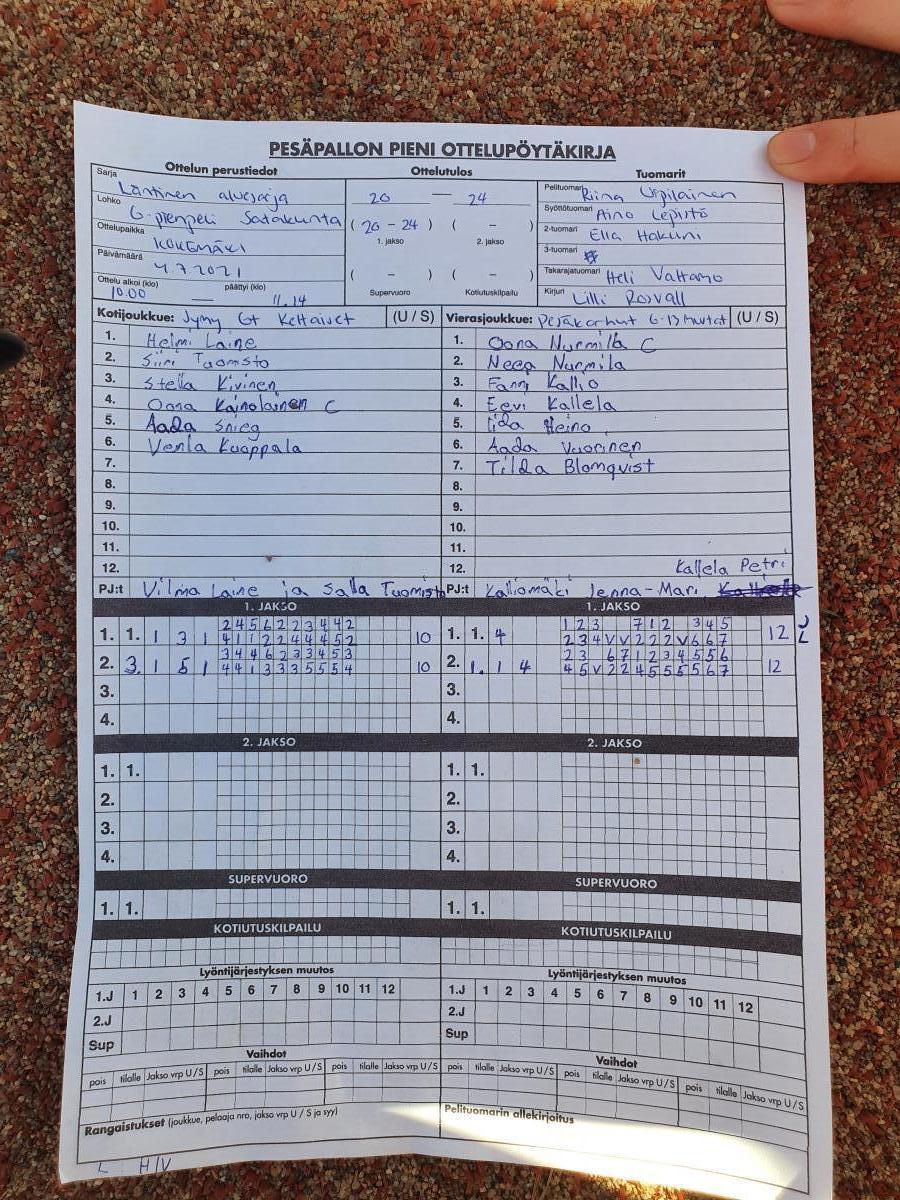 PESÄPALLON PIENI OTTELUPÖYTÄKIRJA
Ottelun perustiedot
Sarja Läntinen aluesarja
Lohko G-pienpeli Satakunta
Ottelupaikka KOKEMÄKI
Päivämäärä 4.7.2021
Ottelu alkoi (klo) 10.00 — päättyi (klo) 11.14
Ottelutulos
20 — 24
( 20 - 24 ) ( - )
1. jakso 2. jakso
( - ) ( - )
Supervuoro Kotiutuskilpailu
Tuomarit
Pelituomari Riina Urpilainen
Syöttötuomari Aino Lepistö
2-tuomari Ella Hakuni
3-tuomari
Takarajatuomari Heli Valtamo
Kirjuri Lilli Rosvall
Kotijoukkue: Jymy Gt Keltaiset (U / S)
1. Helmi Laine
2. Siiri Tuomisto
3. Stella Kivinen
4. Oona Kainolainen C
5. Aada Snieg
6. Venla Kuoppala
7.
8.
9.
10.
11.
12.
PJ:t Vilma Laine ja Salla Tuomisto
Vierasjoukkue: Pesäkarhut G-13 Mustat (U / S)
1. Oona Nurmilla C
2. Neea Nurmila
3. Fanni Kallio
4. Eevi Kallela
5. Iida Heino
6. Aada Vuorinen
7. Tilda Blomqvist
8.
9.
10.
11.
12. Kallela Petri
PJ:t Kalliomäki Jenna-Mari
1. JAKSO
2 4 5 6 2 2 3 4 4 2
1. 1. 1 3 1 4 1 1 2 2 4 4 4 5 2 10
3 4 4 6 2 3 3 4 5 3
2. 3. 1 5 1 4 4 1 3 3 3 5 5 5 4 10
3.
4.
1. JAKSO
1 2 3 7 1 2 3 4 5
1. 1. 4 2 3 4 V V 2 2 2 V 6 6 7 12
2 3 6 7 1 2 3 4 5 5 6
2. 1. 1 4 4 5 V 2 2 4 5 5 5 5 6 7 12
3.
4.
2. JAKSO
1. 1.
2.
3.
4.
2. JAKSO
1. 1.
2.
3.
4.
SUPERVUORO
1. 1.
SUPERVUORO
1. 1.
KOTIUTUSKILPAILU
KOTIUTUSKILPAILU
Lyöntijärjestyksen muutos
1.J 1 2 3 4 5 6 7 8 9 10 11 12
2.J
Sup
Lyöntijärjestyksen muutos
1.J 1 2 3 4 5 6 7 8 9 10 11 12
2.J
Sup
Vaihdot
pois tilalle Jakso vrp U/S pois tilalle Jakso vrp U/S pois tilalle Jakso vrp U/S
Vaihdot
pois tilalle Jakso vrp U/S pois tilalle Jakso vrp U/S pois tilalle Jakso vrp U/S
Rangaistukset (joukkue, pelaaja nro, jakso vrp U / S ja syy)
Pelituomarin allekirjoitus
L H/V